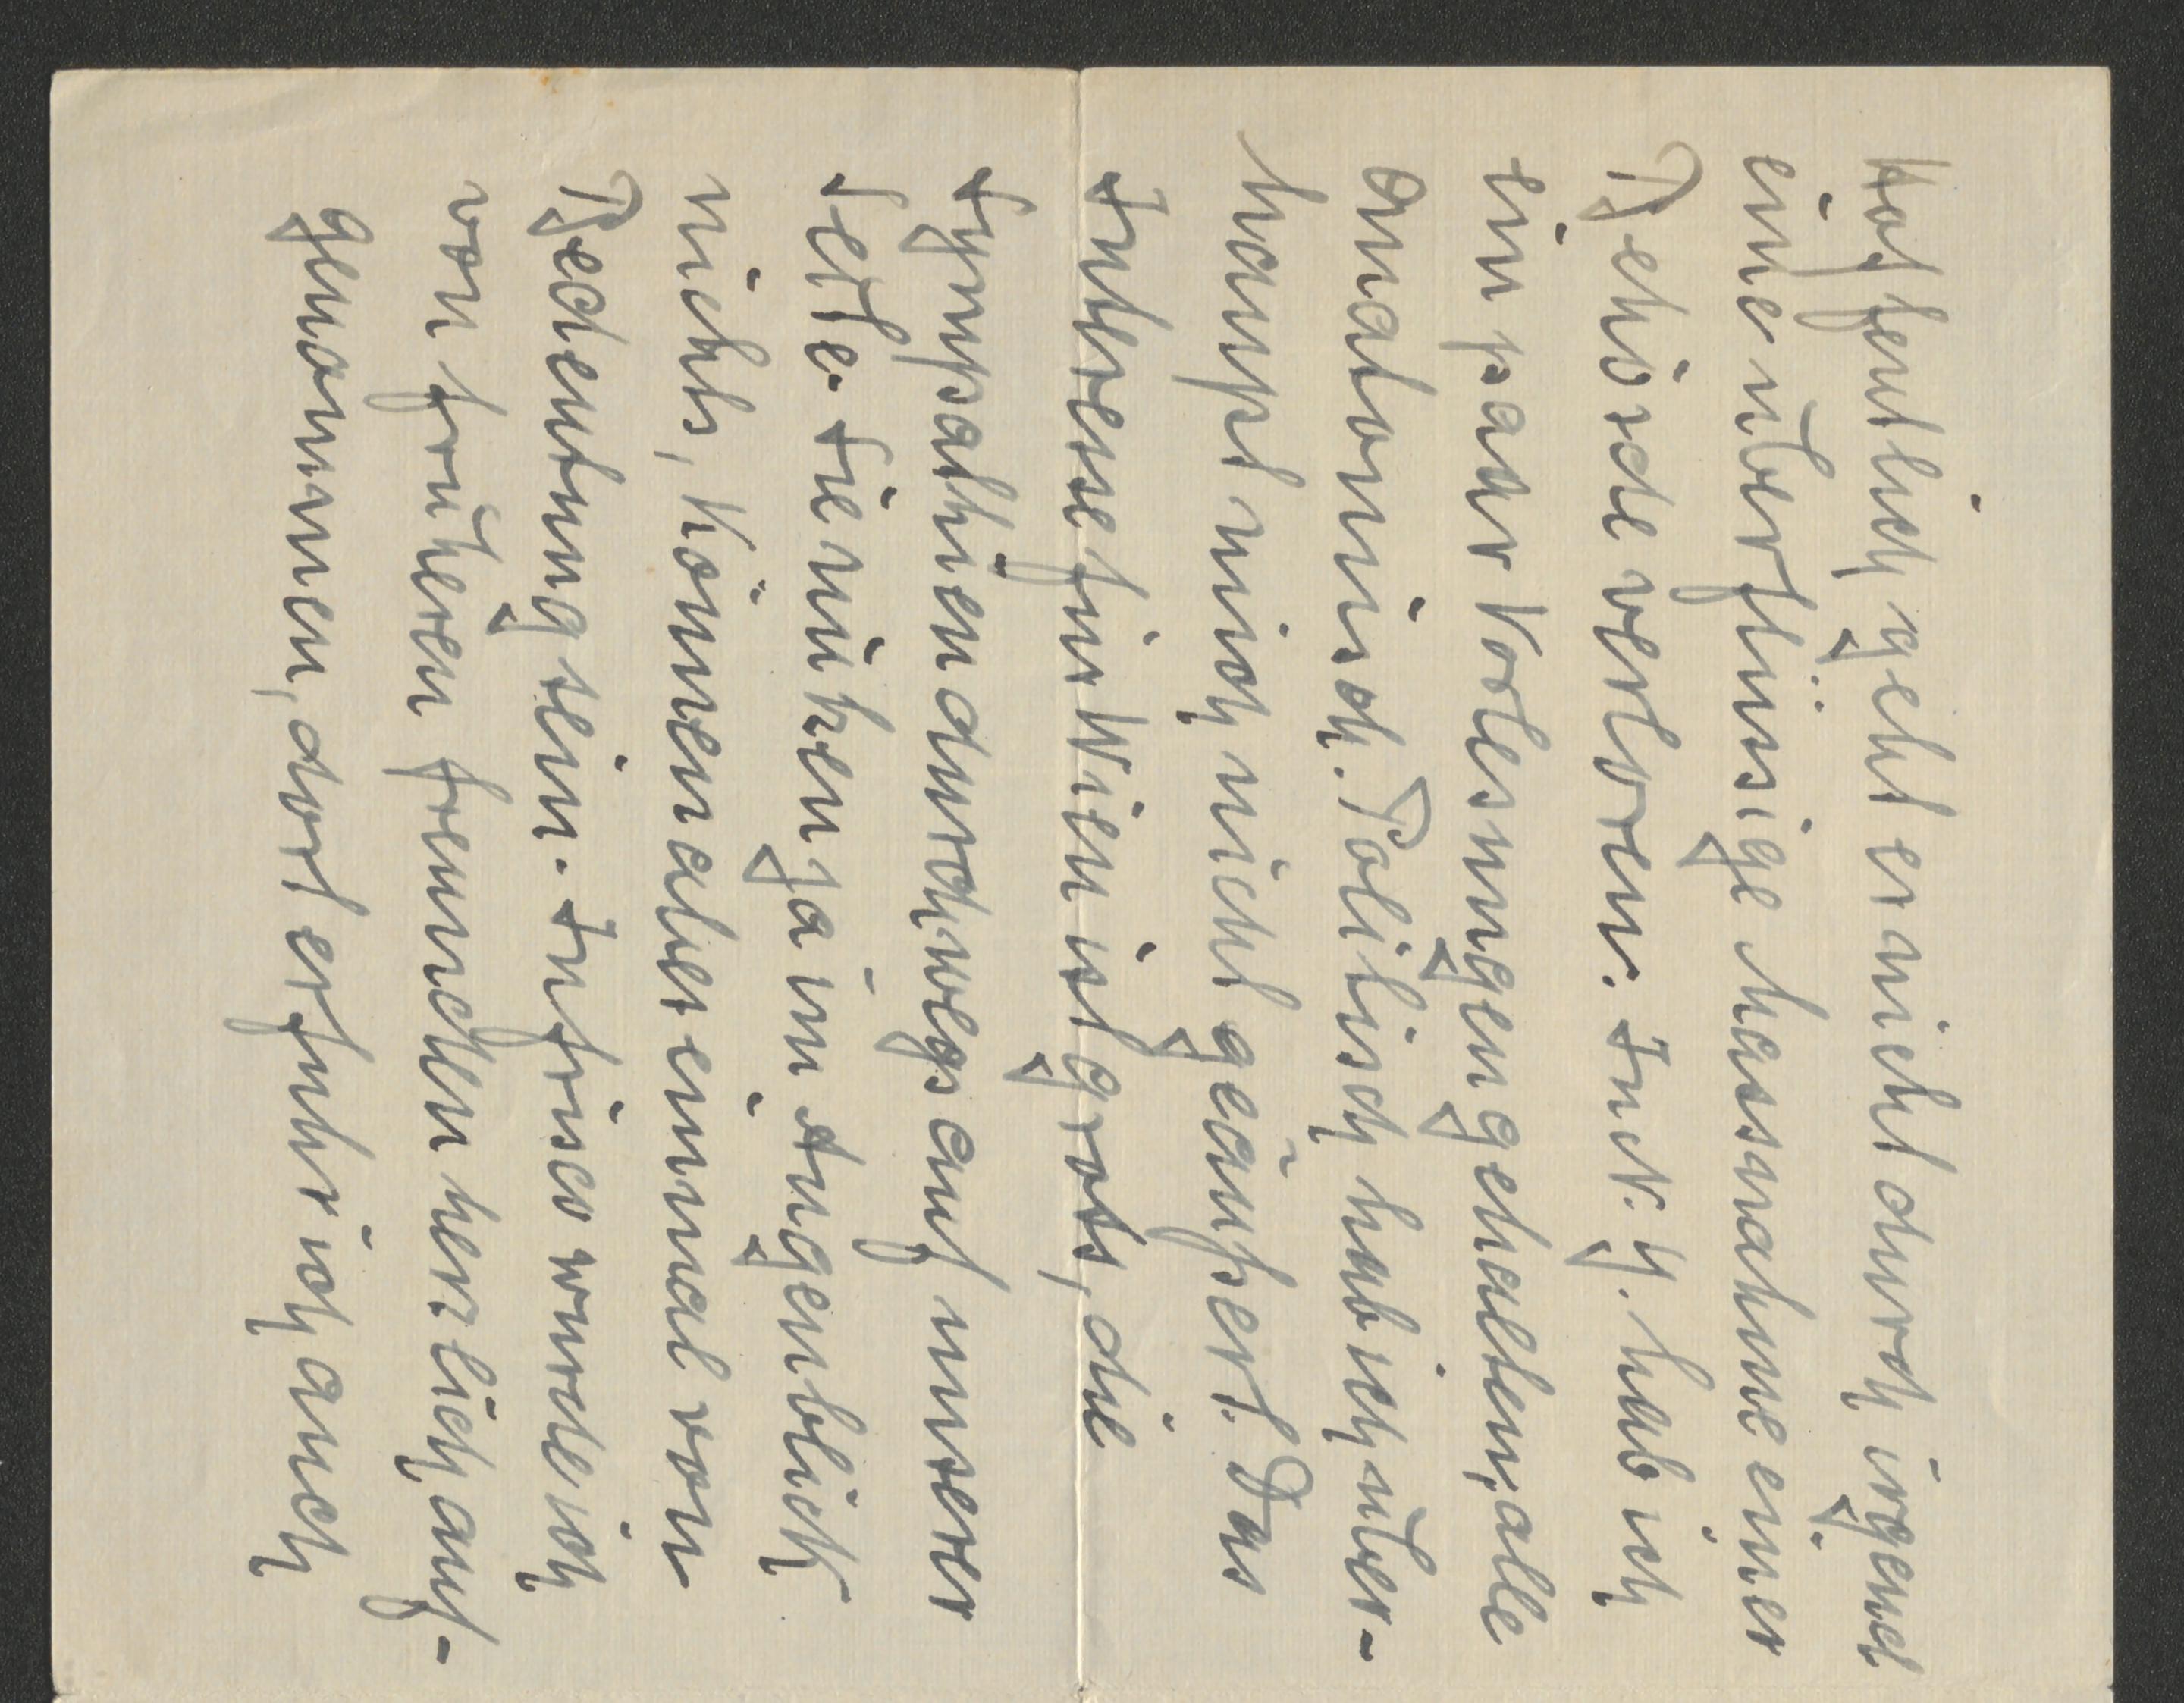 Hoffentlich geht er nicht durch irgend
eine überflüssige Massnahme einer
Behörde verloren. In N. Y. hab ich
ein paar Vorlesungen gehalten, alle
ornatomisch. Politisch hab ich über-
haupt mich nicht geäußert. Das
Interesse für Wien ist gross, die
Sympathien durchwegs auf unserer
Seite. Sie nützen ja im Augenblick
nichts, können aber einmal von
Bedeutung sein. In Frisco wurde ich
von früheren Freunden herzlich auf-
genommen, dort erfuhr ich auch